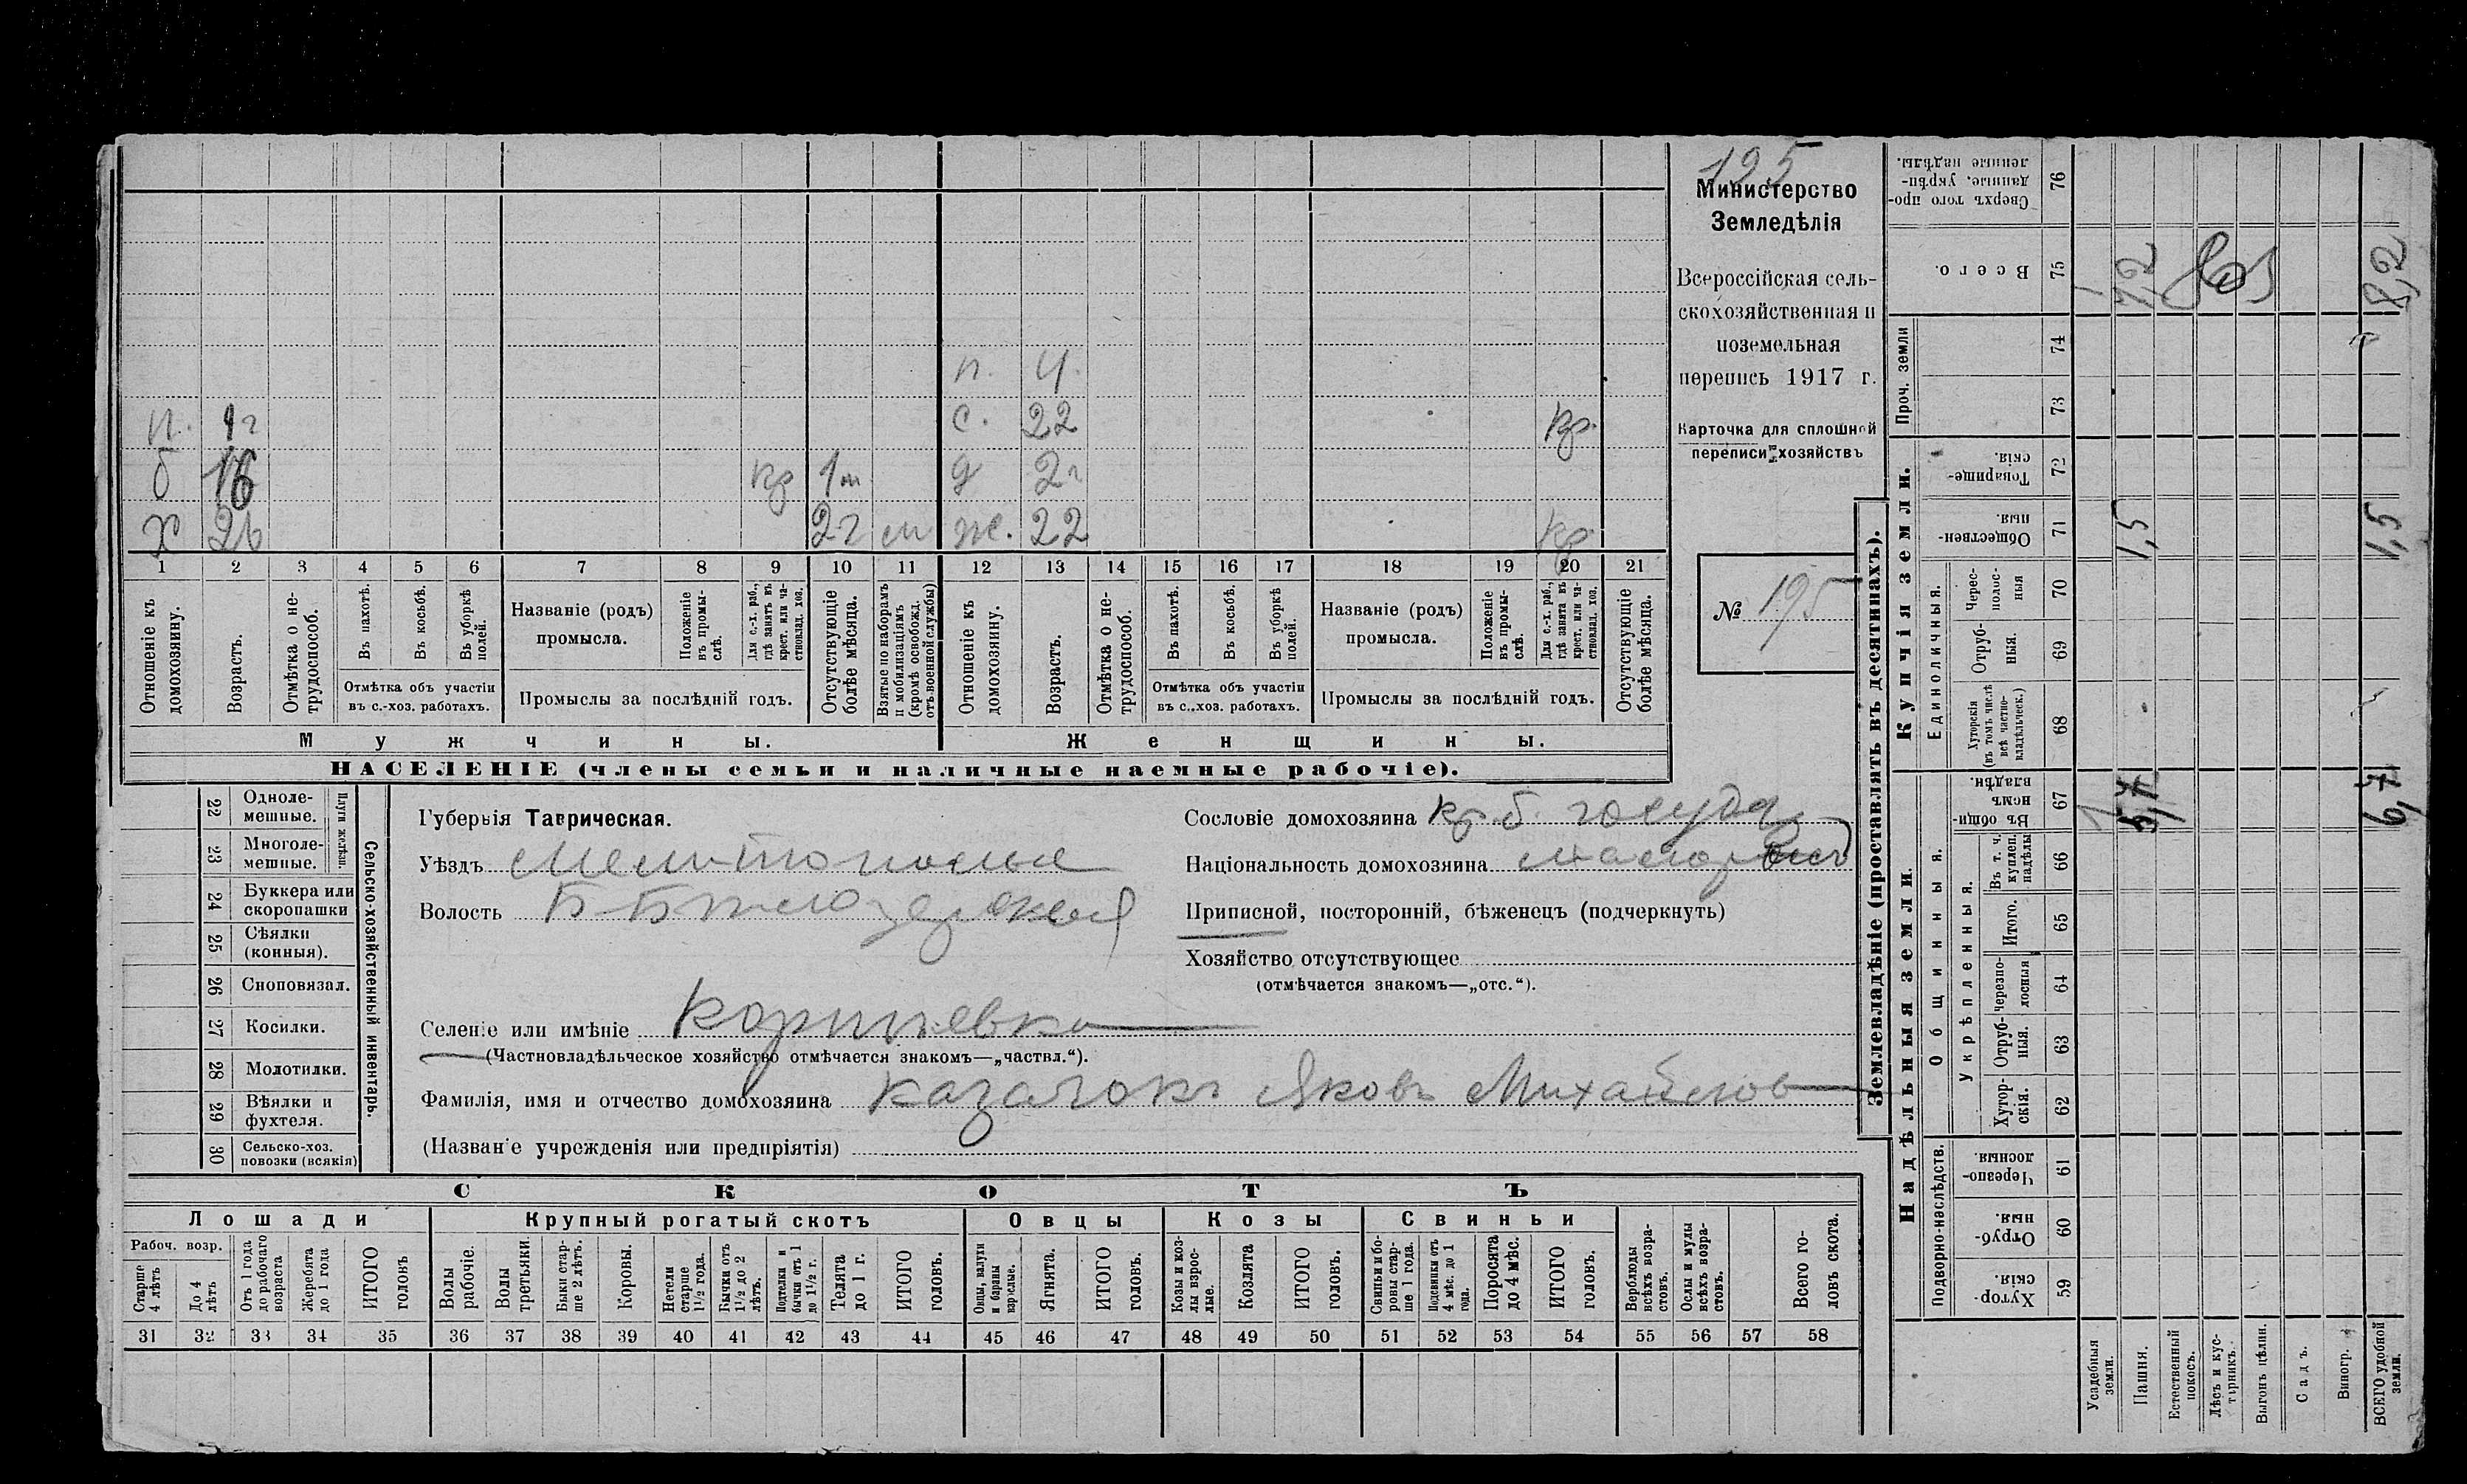 195
Министерство
Земледѣлія
Всероссійская сель-
скохозяйственная и
поземельная
перепись 1917 г.
Карточка для сплошной
переписи хозяйствъ
№ 195
п. 4.
п. 1г с. 22 кр.
б 16 кр 1м д 2г
х 26 2г м ж. 22 кр
1 2 3 4 5 6 7 8 9 10 11 12 13 14 15 16 17 18 19 20 21
Отношеніе къ домохозяину.
Возрастъ.
Отмѣтка о не-трудоспособ.
Въ пахотѣ.
Въ косьбѣ.
Въ уборкѣ полей.
Отмѣтка объ участіи
въ с.-хоз. работахъ.
Названіе (родъ)
промысла.
Положеніе въ промы-слѣ.
Для с.-х. раб., гдѣ занятъ въ крест. или ча-стновлад. хоз.
Промыслы за послѣдній годъ.
Отсутствующіе болѣе мѣсяца.
Взятые по наборамъ и мобилизаціямъ (кромѣ освобожд. отъ военной службы)
Отношеніе къ домохозяину.
Возрастъ.
Отмѣтка о не-трудоспособ.
Въ пахотѣ.
Въ косьбѣ.
Въ уборкѣ полей.
Отмѣтка объ участіи
въ с.-хоз. работахъ.
Названіе (родъ)
промысла.
Положеніе въ промы-слѣ.
Для с.-х. раб., гдѣ занята въ крест. или ча-стновлад. хоз.
Промыслы за послѣдній годъ.
Отсутствующіе болѣе мѣсяца.
Мужчины. Женщины.
НАСЕЛЕНІЕ (члены семьи и наличные наемные рабочіе).
Сельско-хозяйственный инвентарь.
Плуги желѣзн.
22 Одноле-мешные.
23 Многоле-мешные.
24 Буккера или скоропашки
25 Сѣялки (конныя).
26 Сноповязал.
27 Косилки.
28 Молотилки.
29 Вѣялки и фухтеля.
30 Сельско-хоз. повозки (всякія)
Губернія Таврическая.
Уѣздъ Мелитополье
Волость Б-Бѣлозерская
Селеніе или имѣніе
(Частновладѣльческое хозяйство отмѣчается знакомъ—„частвл.“).
Фамилія, имя и отчество домохозяина Казачокъ Яковъ Михайлов
(Названіе учрежденія или предпріятія)
Сословіе домохозяина кр. б. госуда
Національность домохозяина малор
Приписной, посторонній, бѣженецъ (подчеркнуть)
Хозяйство отсутствующее
(отмѣчается знакомъ—„отс.“).
СКОТЪ
Лошади Крупный рогатый скотъ Овцы Козы Свиньи
Рабоч. возр.
Старше 4 лѣтъ
До 4 лѣтъ
Отъ 1 года до рабочаго возраста
Жеребята до 1 года
ИТОГО головъ
Волы рабочіе.
Волы третьяки.
Быки стар-ше 2 лѣтъ.
Коровы.
Нетели старше 1½ года.
Бычки отъ 1½ до 2 лѣтъ.
Подтелки и бычки отъ 1 до 1½ г.
Телята до 1 г.
ИТОГО головъ.
Овцы, валухи и бараны взрослые.
Ягнята.
ИТОГО головъ.
Козы и коз-лы взрос-лые.
Козлята
ИТОГО головъ.
Свиньи и бо-ровы стар-ше 1 года.
Подсвинки отъ 4 мѣс. до 1 года.
Поросята до 4 мѣс.
ИТОГО головъ.
Верблюды всѣхъ возра-стовъ.
Ослы и мулы всѣхъ возра-стовъ.
Всего го-ловъ скота.
31 32 33 34 35 36 37 38 39 40 41 42 43 44 45 46 47 48 49 50 51 52 53 54 55 56 57 58
Землевладѣніе (проставлять въ десятинахъ).
Надѣльныя земли.
Подворно-наслѣдств.
Хутор-скія. 59
Отруб-ныя. 60
Черезпо-лосныя. 61
Общинныя.
Укрѣпленныя.
Хутор-скія. 62
Отруб-ныя. 63
Черезпо-лосныя 64
Итого. 65
Въ т. ч. куплен. надѣлы 66
Въ общин-номъ владѣн. 67
Купчія земли.
Единоличныя.
Хуторскія (въ томъ числѣ всѣ частно-владѣльческ.) 68
Отруб-ныя. 69
Черес-полос-ныя 70
Обществен-ныя. 71
Товарище-скія. 72
Проч. земли
73
74
Всего. 75
Сверхъ того про-данные, укрѣп-ленные надѣлы. 76
Усадебныя земли. 1 1
Пашня. 5,7 1,5 7,2
Естественный покосъ.
Лѣсъ и кус-тарникъ.
Выгонъ цѣлин.
Садъ.
Виногр.
ВСЕГО удобной земли. 6,7 1,5 8,2